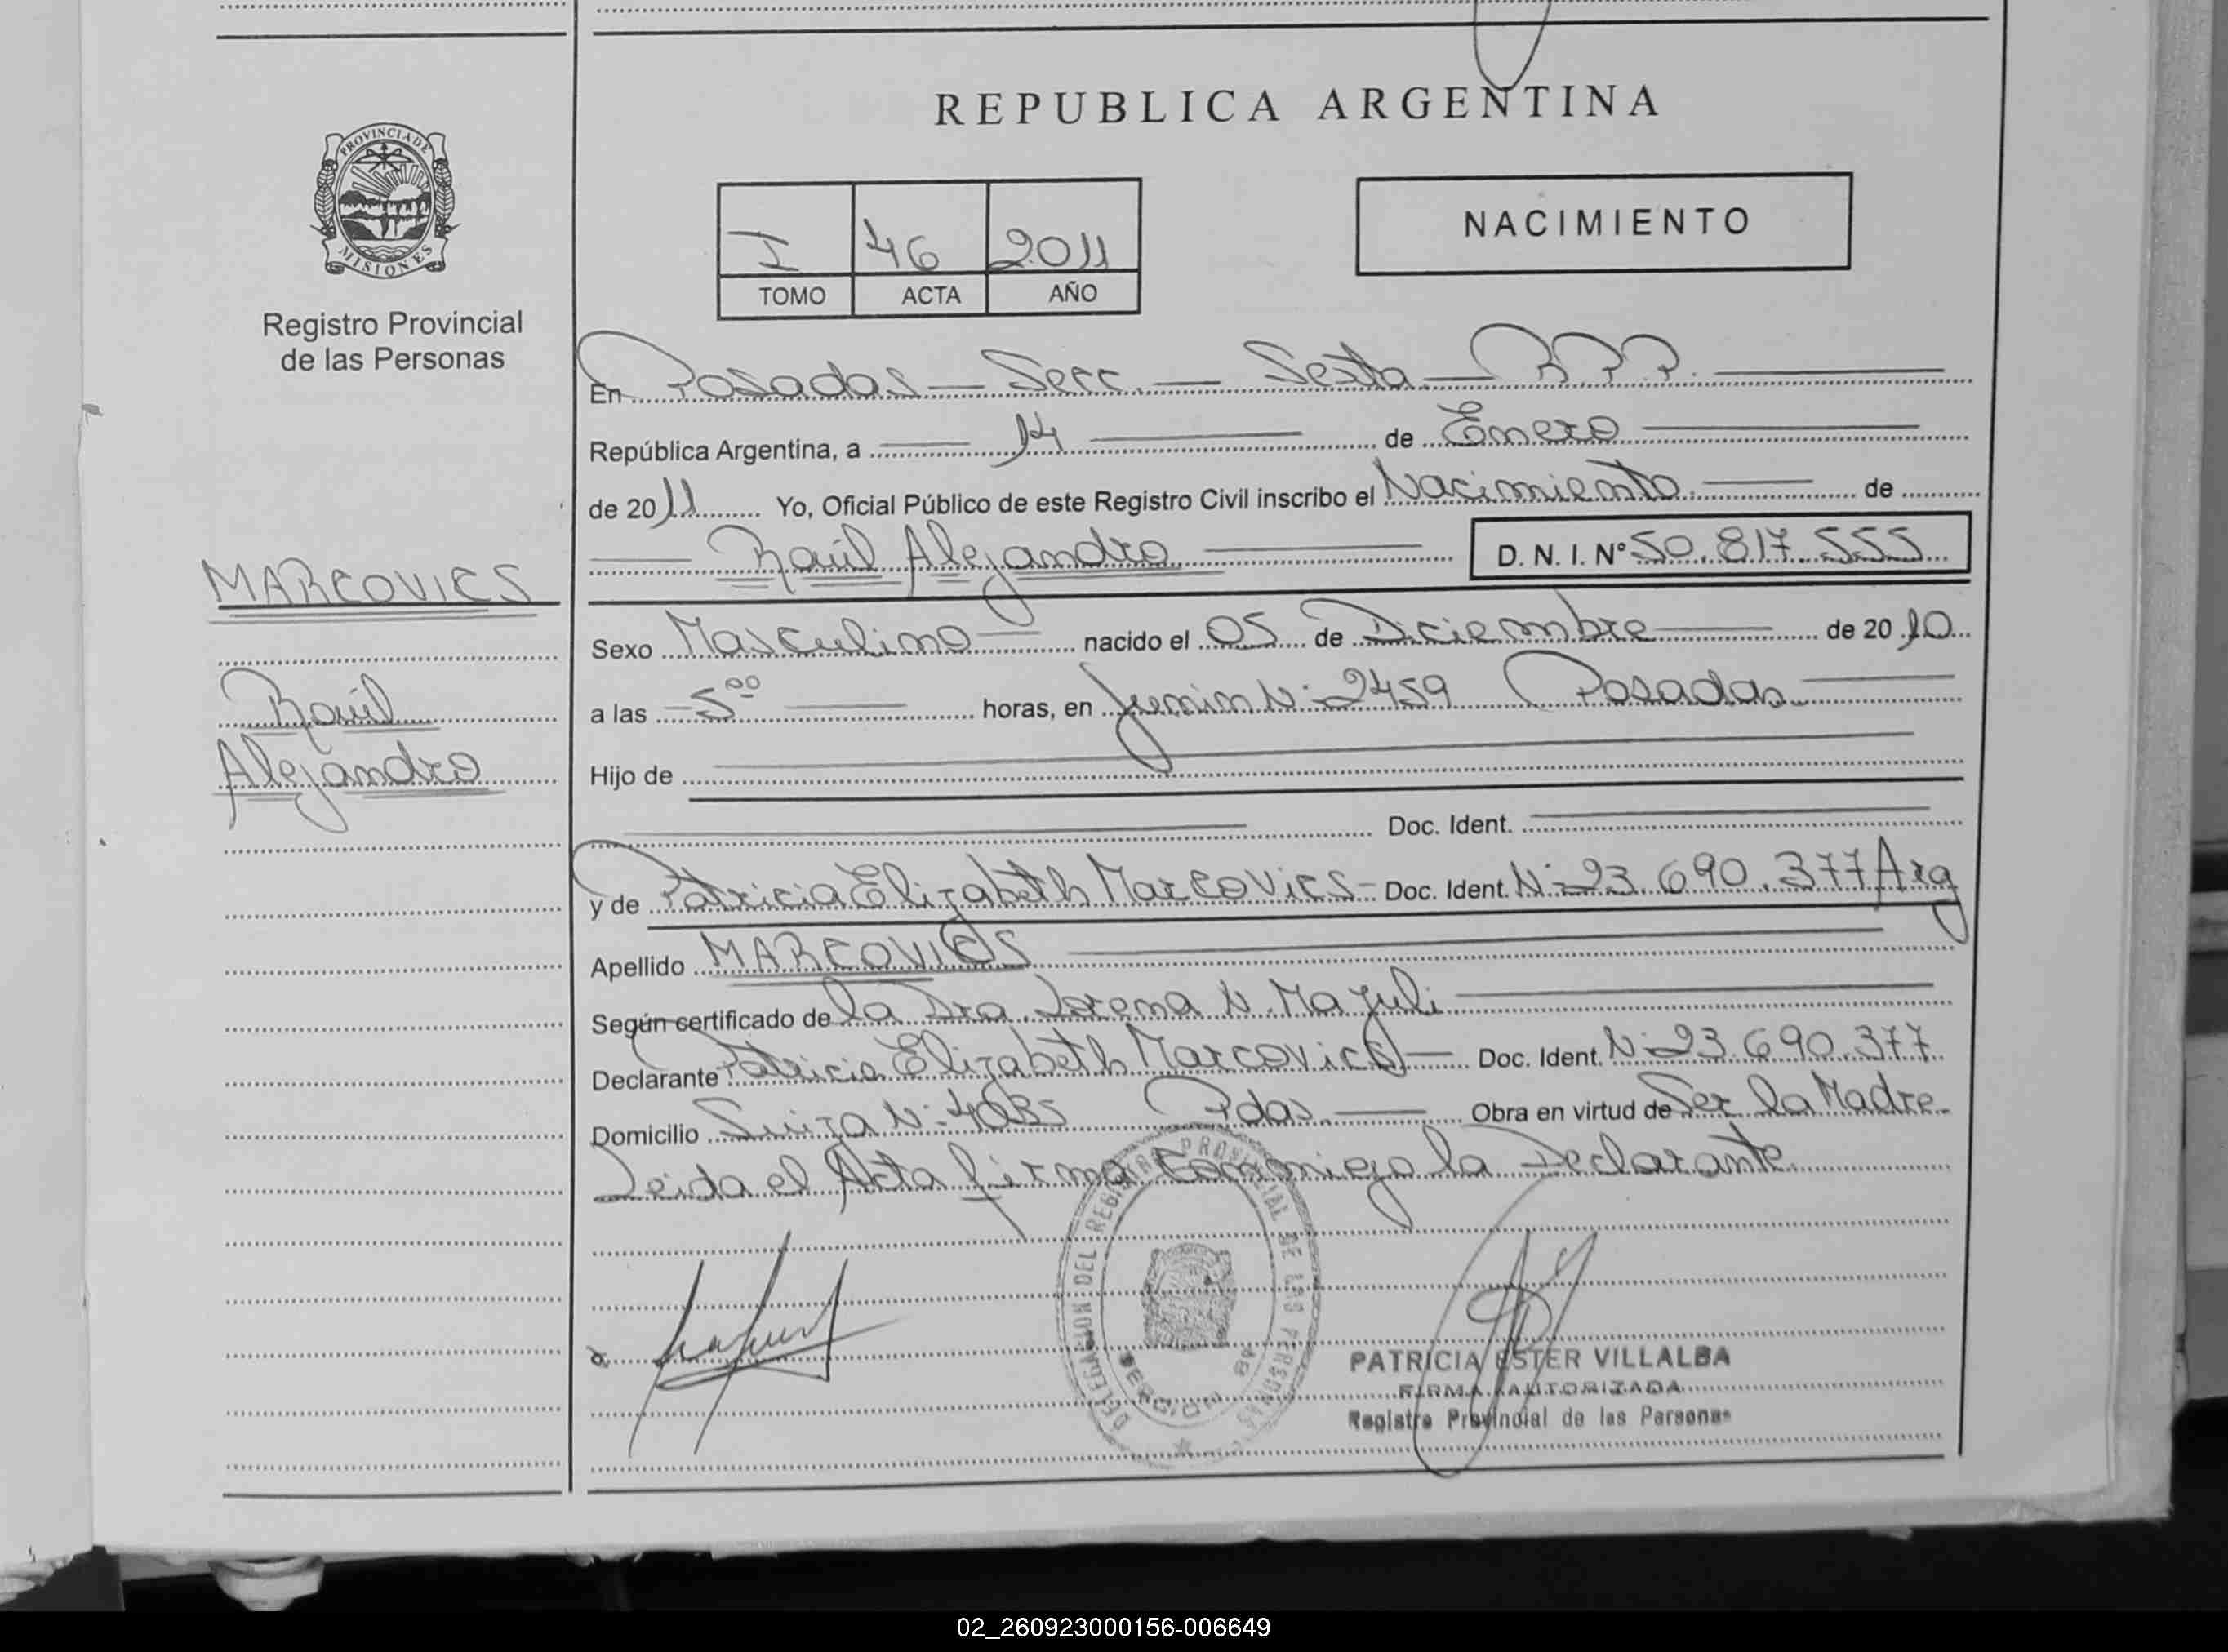 REPUBLICA ARGENTINA
PROVINCIA DE
MISIONES
Registro Provincial
de las Personas
I 46 2011
TOMO ACTA AÑO
NACIMIENTO
En Posadas — Secc. — Sexta — R.P.P.
República Argentina, a 14 de Enero
de 2011 Yo, Oficial Público de este Registro Civil inscribo el Nacimiento de
Raúl Alejandro D. N. I. Nº 50.817.555
MARCOVICS
Raúl
Alejandro
Sexo Masculino nacido el 05 de Diciembre de 2010
a las 5 00 horas, en Junin Nº 2459 Posadas
Hijo de
Doc. Ident.
y de Patricia Elizabeth Marcovics Doc. Ident. Nº 23.690.377 Arg
Apellido MARCOVICS
Según certificado de la Dra. Lorena N. Mazuli
Declarante Patricia Elizabeth Marcovics Doc. Ident. Nº 23.690.377
Domicilio Suiza Nº 4085 Pdas. Obra en virtud de Ser la Madre
Leida el Acta firma Conmigo la Declarante.
DELEGACION DEL REGISTRO PROVINCIAL DE LAS PERSONAS
PATRICIA ESTER VILLALBA
FIRMA AUTORIZADA
Registro Provincial de las Personas
02_260923000156-006649